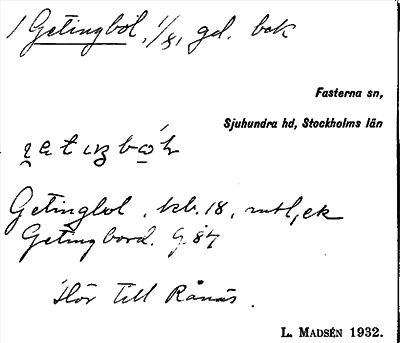 / Getingböl, 1/8, gd. bok
Fasterna sn,
Sjuhundra hd, Stockholms län
Getingbol, kb. 18, mtl, ek
Getingbord. G. 87
Hör till Rånäs.
L. MADSÉN 1932.